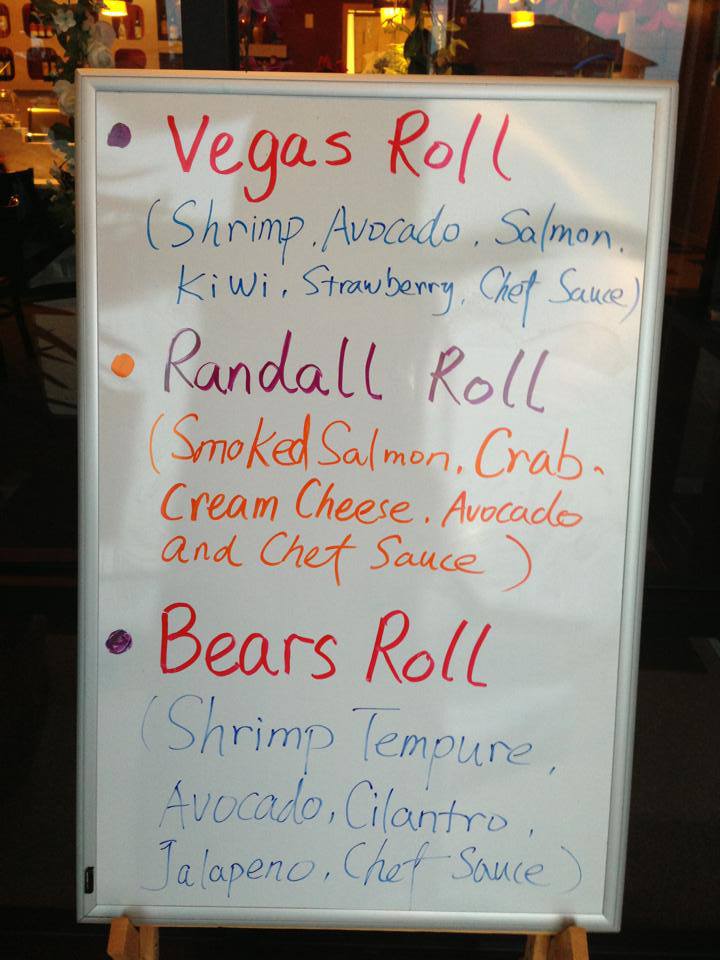 Vegas Roll
(Shrimp. Avocado. Salmon.
Kiwi. Strawberry. Chef Sauce)
Randall Roll
(Smoked Salmon. Crab.
Cream Cheese. Avocado
and Chef Sauce)
Bears Roll
(Shrimp Tempure,
Avocado, Cilantro,
Jalapeno, Chef Sauce)